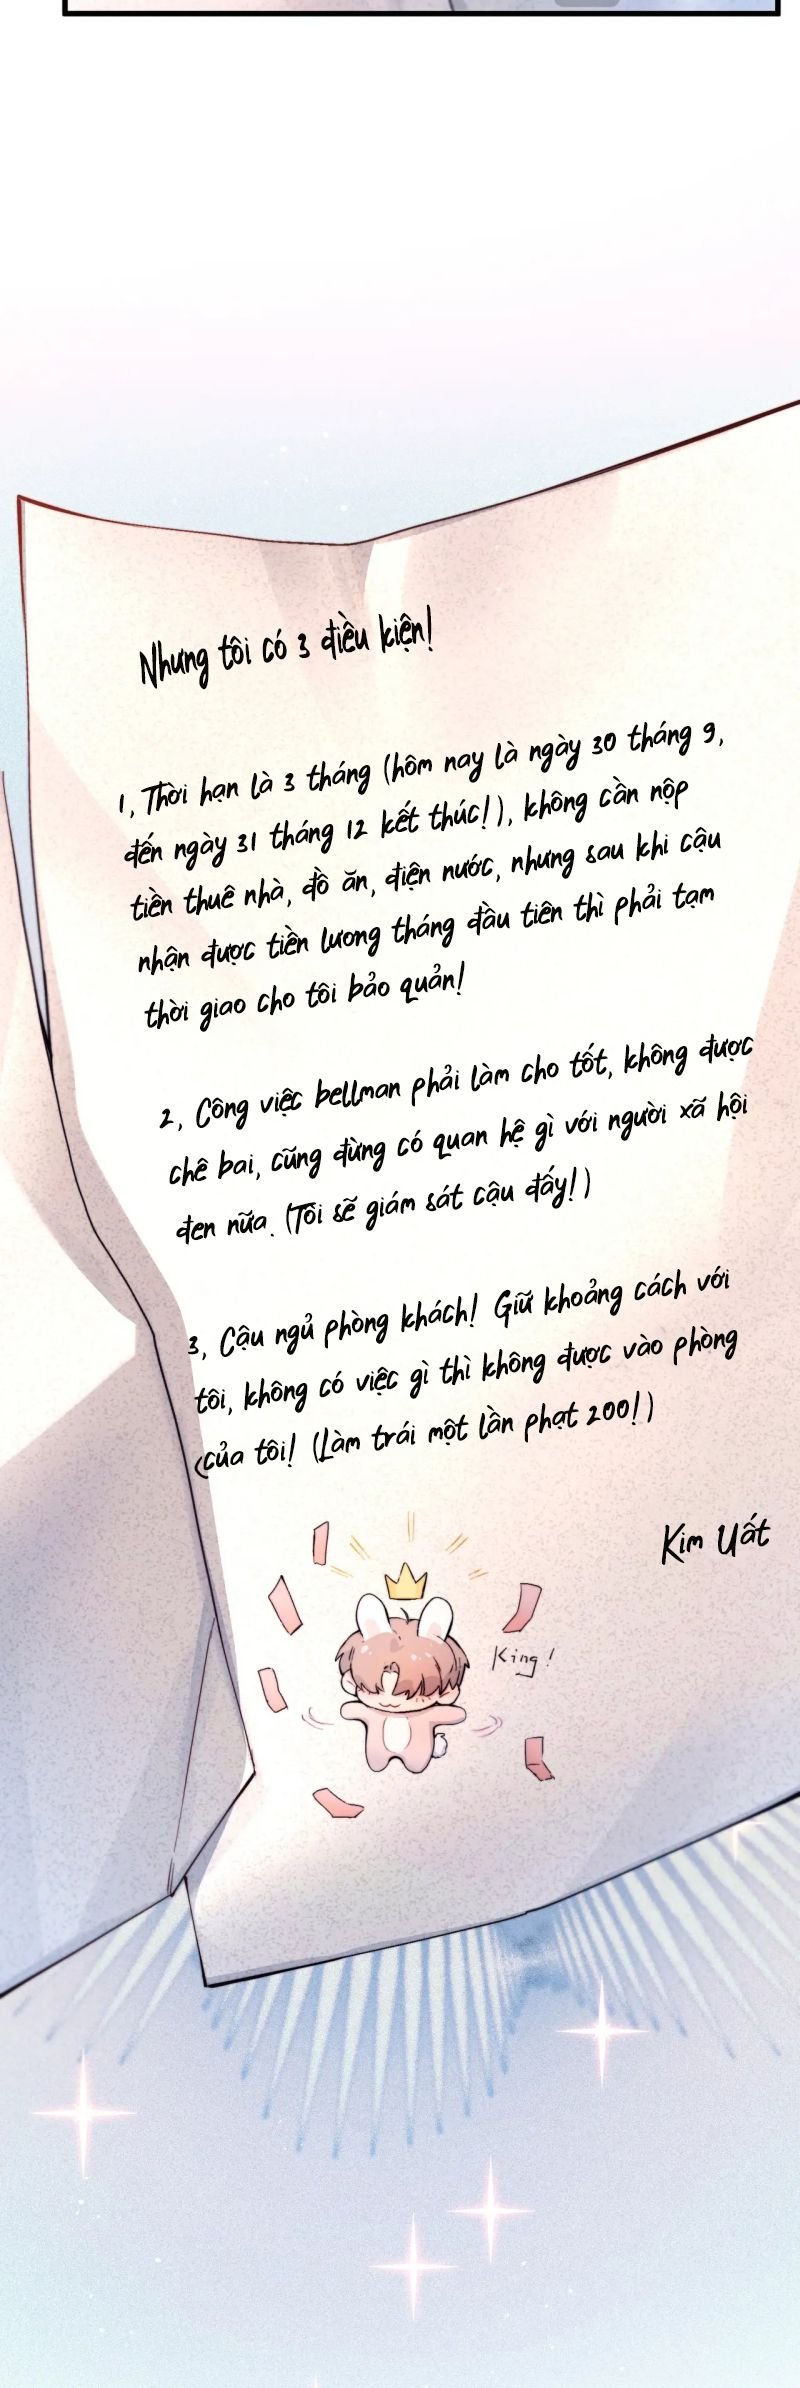 Nhưng tôi có 3 điều kiện!
1, Thời hạn là 3 tháng (hôm nay là ngày 30 tháng 9,
đến ngày 31 tháng 12 kết thúc!), không cần nộp
tiền thuê nhà, đồ ăn, điện nước, nhưng sau khi cậu
nhận được tiền lương tháng đầu tiên thì phải tạm
thời giao cho tôi bảo quản!
2, Công việc bellman phải làm cho tốt, không được
chê bai, cũng đừng có quan hệ gì với người xã hội
đen nữa. (Tôi sẽ giám sát cậu đấy!)
3, Cậu ngủ phòng khách! Giữ khoảng cách với
tôi, không có việc gì thì không được vào phòng
của tôi! (Làm trái một lần phạt 200!)
Kim Uất
King!